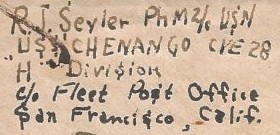 R. J. Seyler PhM 2/c USN
USS CHENANGO CVE 28
"H" Division
c/o Fleet Post Office
San Francisco, Calif.